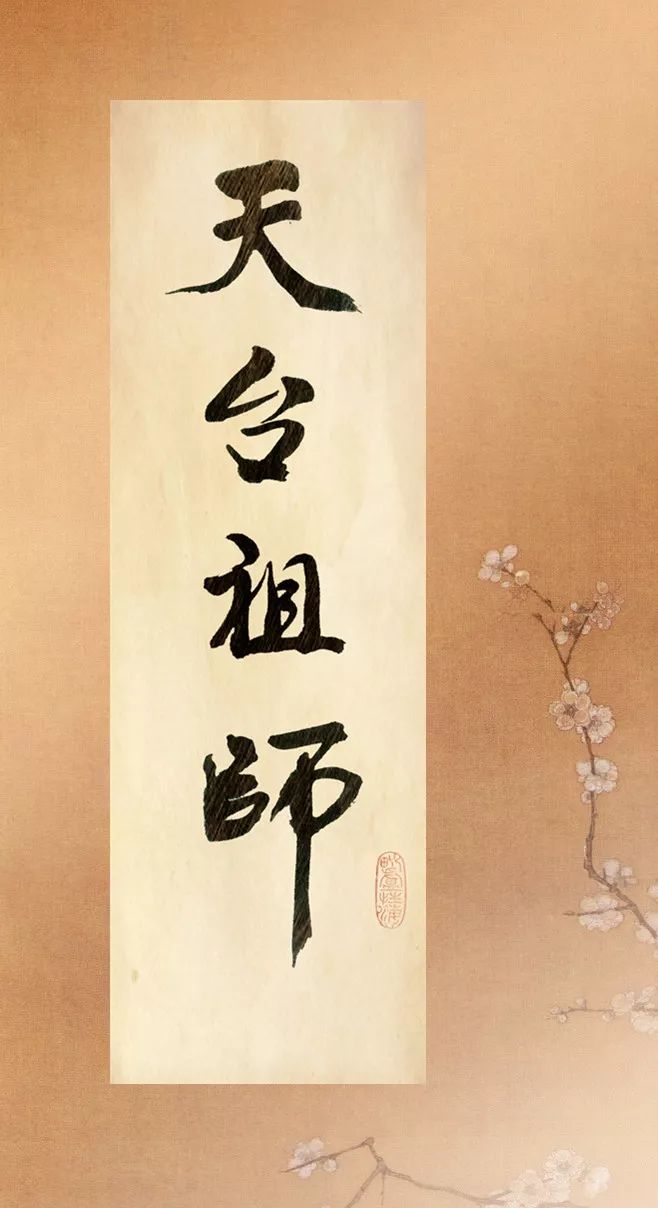 天台祖師